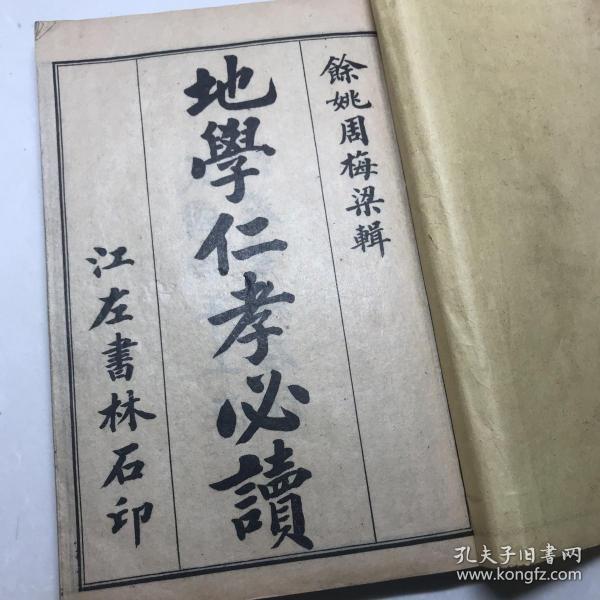 餘姚周梅梁輯
地學仁孝必讀
江左書林石印
孔夫子旧书网
www.kongfz.com